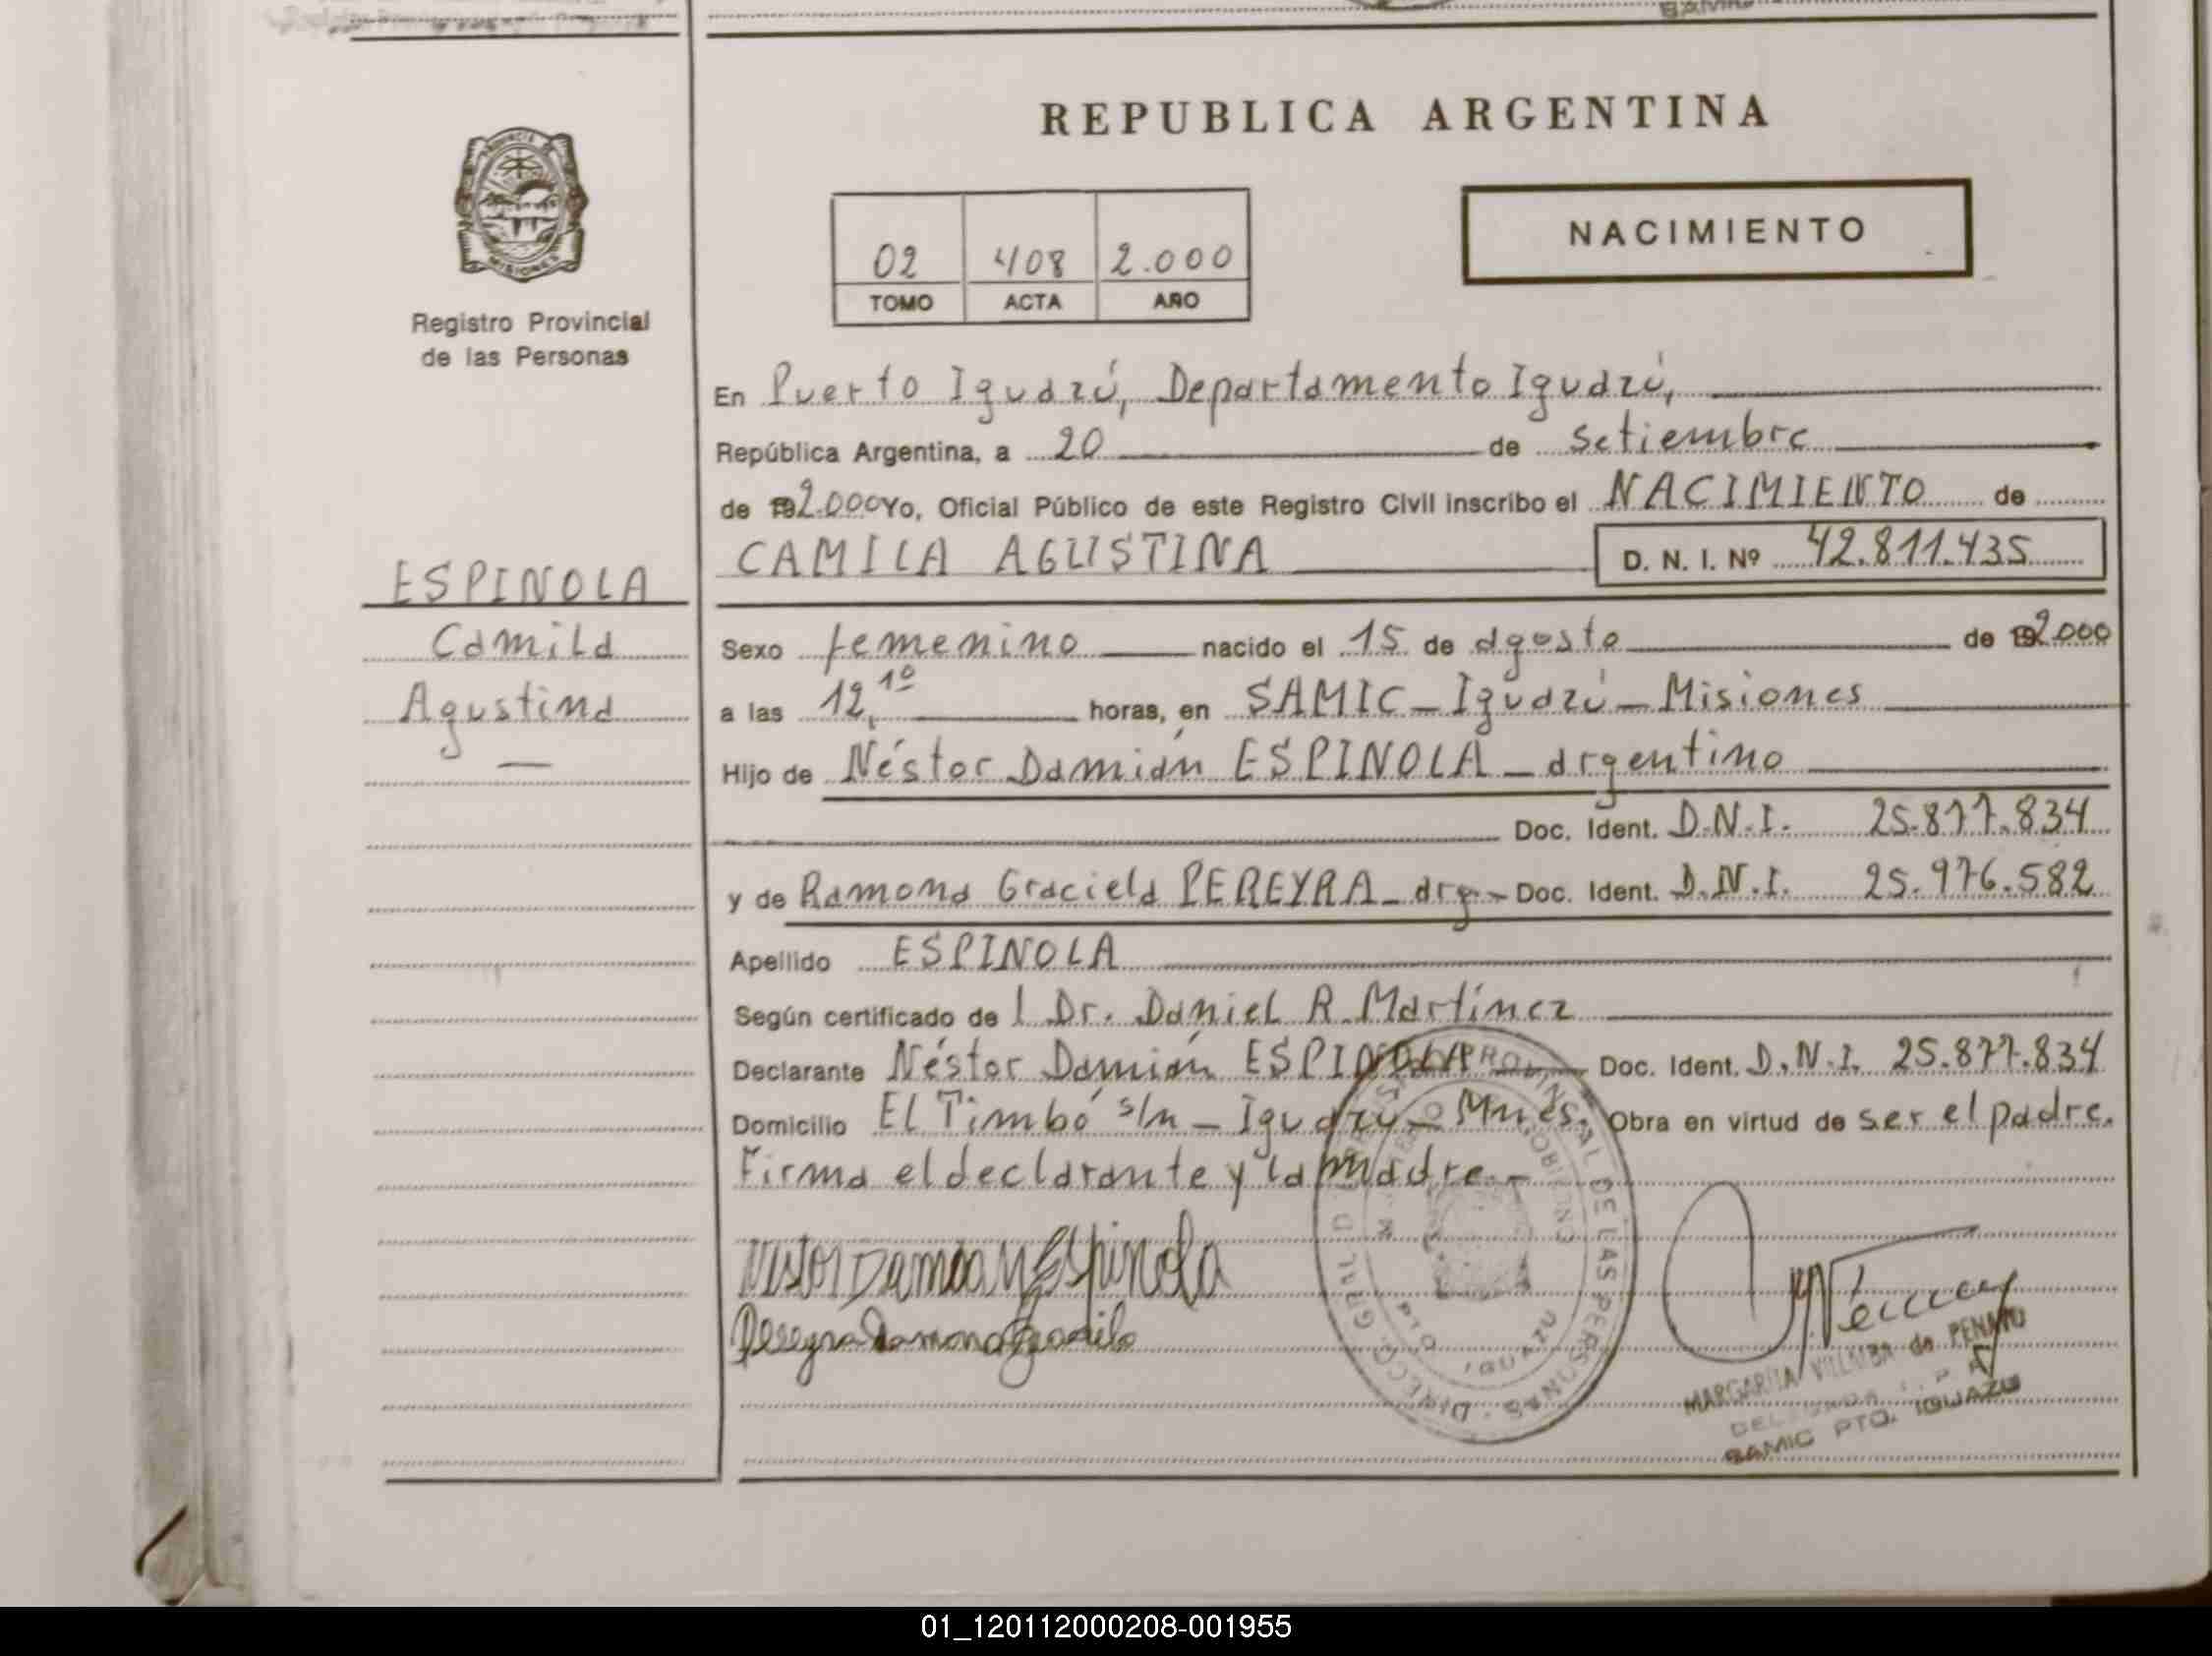 REPUBLICA ARGENTINA
PROVINCIA DE
MISIONES
Registro Provincial
de las Personas
02 408 2.000
TOMO ACTA AÑO
NACIMIENTO
En Puerto Iguazú, Departamento Iguazú,
República Argentina, a 20 de setiembre
de 192.000 Yo, Oficial Público de este Registro Civil inscribo el NACIMIENTO de
CAMILA AGUSTINA D. N. I. Nº 42.811.435
ESPINOLA
Camila
Agustina
Sexo femenino nacido el 15 de agosto de 192.000
a las 12,10 horas, en SAMIC - Iguazú - Misiones
Hijo de Néstor Damián ESPINOLA - argentino
Doc. Ident. D.N.I. 25.877.834
y de Ramona Graciela PEREYRA - arg.- Doc. Ident. D.N.I. 25.976.582
Apellido ESPINOLA
Según certificado de l Dr. Daniel R. Martínez
Declarante Néstor Damián ESPINOLA Doc. Ident. D.N.I. 25.877.834
Domicilio El Timbó s/n - Iguazú - Mnes. Obra en virtud de ser el padre.
Firma el declarante y la madre.-
Nestor Damian Espinola
Pereyra Ramona Graciela
PROVINCIAL DE LAS PERSONAS
PTO. IGUAZU
MARGARITA VILLALBA de PENAYO
SAMIC PTO. IGUAZU
01_120112000208-001955